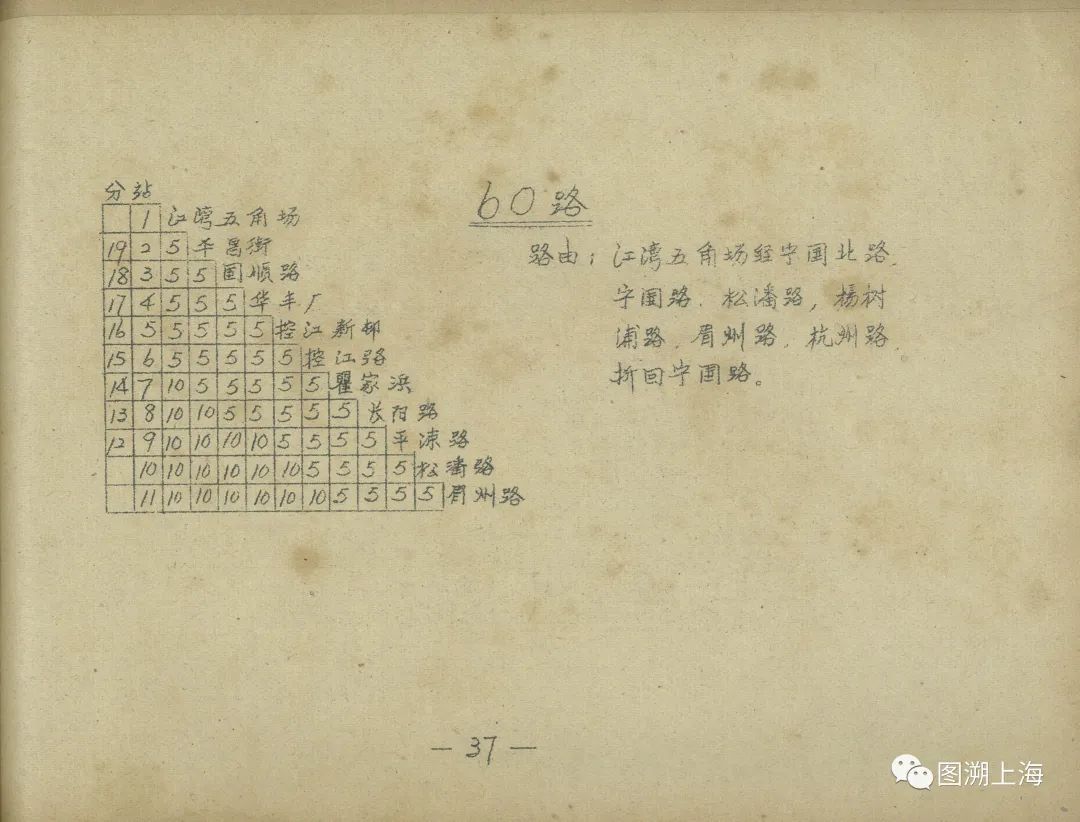 分站
1 江湾五角场
19 2 5 平昌街
18 3 5 5 国顺路
17 4 5 5 5 华丰厂
16 5 5 5 5 5 控江新邨
15 6 5 5 5 5 5 控江路
14 7 10 5 5 5 5 5 瞿家浜
13 8 10 10 5 5 5 5 5 长阳路
12 9 10 10 10 10 5 5 5 5 平凉路
10 10 10 10 10 10 5 5 5 5 松潘路
11 10 10 10 10 10 10 5 5 5 5 眉州路
60路
路由：江湾五角场经宁国北路、
宁国路、松潘路，杨树
浦路、眉州路、杭州路、
折回宁国路。
— 37 —
图溯上海